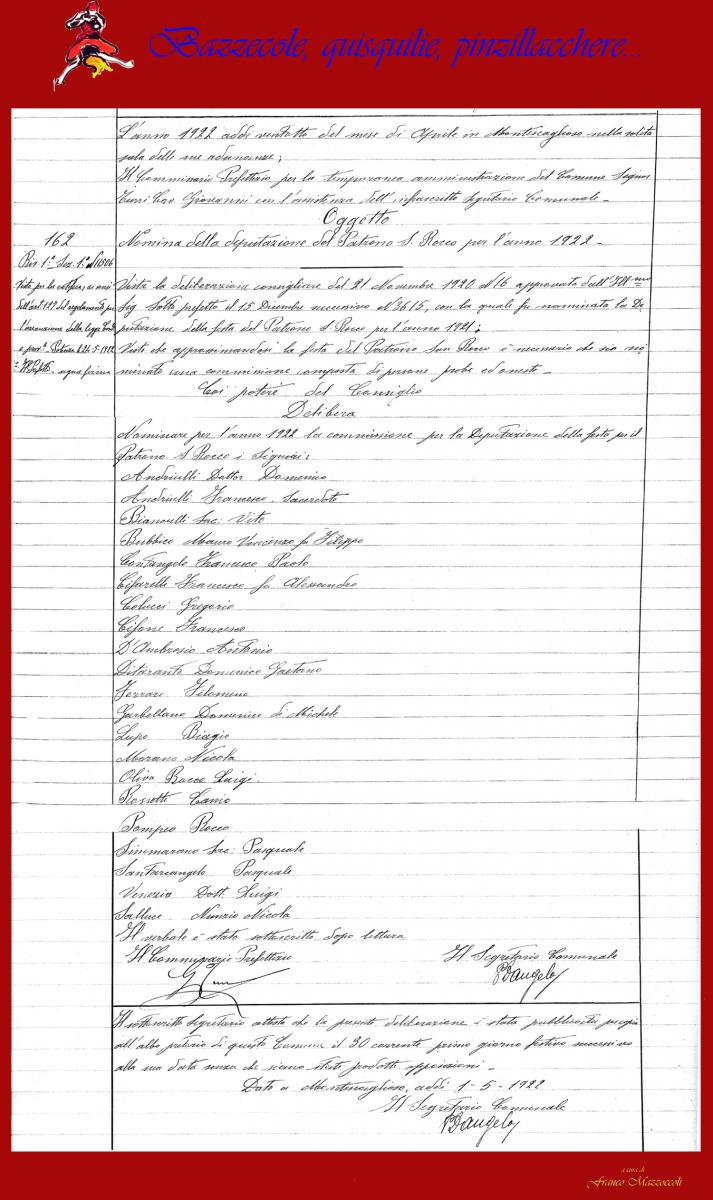 Bazzecole, quisquilie, pinzillacchere...
L'anno 1922 addì ventotto del mese di Aprile in Montescaglioso nella solita
sala delle sue adunanze;
Il Commissario Prefettizio per la temporanea amministrazione del Comune Signor
Turri Cav. Giovanni con l'assistenza dell'infrascritto Segretario Comunale.
Oggetto
162
Nomina della deputazione del Patrono S. Rocco per l'anno 1922 -
Div. 1ª Sez. 1ª
Visto per la ratifica, ai sensi
dell'art. 127 del regolamento per
l'esecuzione della legge Com.
e prov. Potenza li 26-5-1922
Il Prefetto - segue firma
Vista la deliberazione consigliare del 21 Novembre 1920 N. 16 approvata dall'Ill.mo
Sig. Sotto prefetto il 15 Dicembre successivo N. 3615, con la quale fu nominata la De-
putazione della festa del Patrono S. Rocco per l'anno 1921;
Visto che approssimandosi la festa del Patrono San Rocco è necessario che sia no-
minata una commissione composta di persone probe ed oneste -
Coi poteri del Consiglio
Delibera
Nominare per l'anno 1922 la commissione per la Deputazione della festa per il
Patrono S. Rocco i Signori:
Andriulli Dottor Domenico
Andriulli Francesco Sacerdote
Bianculli Sac: Vito
Bubbico Mauro Vincenzo fu Filippo
Contangelo Francesco Paolo
Cifarelli Francesco fu Alessandro
Colucci Gregorio
Cifone Francesco
D'Ambrosio Antonio
Ditaranto Domenico Gaetano
Ferrara Filomeno
Garbellano Domenico di Michele
Lupo Biagio
Morano Nicola
Oliva Rocco Luigi.
Rossetti Canio
Pompeo Rocco
Simmarano Sac: Pasquale
Santarcangelo Pasquale
Venezia Dott. Luigi
Salluce Nunzio Nicola
Il verbale è stato sottoscritto dopo lettura
Il Commissario Prefettizio
Il Segretario Comunale
D'angelo
Il sottoscritto Segretario attesta che la presente deliberazione è stata pubblicata per copia
all'albo pretorio di questo Comune il 30 corrente primo giorno festivo successivo
alla sua data senza che siano state prodotte opposizioni -
Dato a Montescaglioso, addì 1-5-1922
Il Segretario Comunale
D'angelo
a cura di
Franco Mazzoccoli